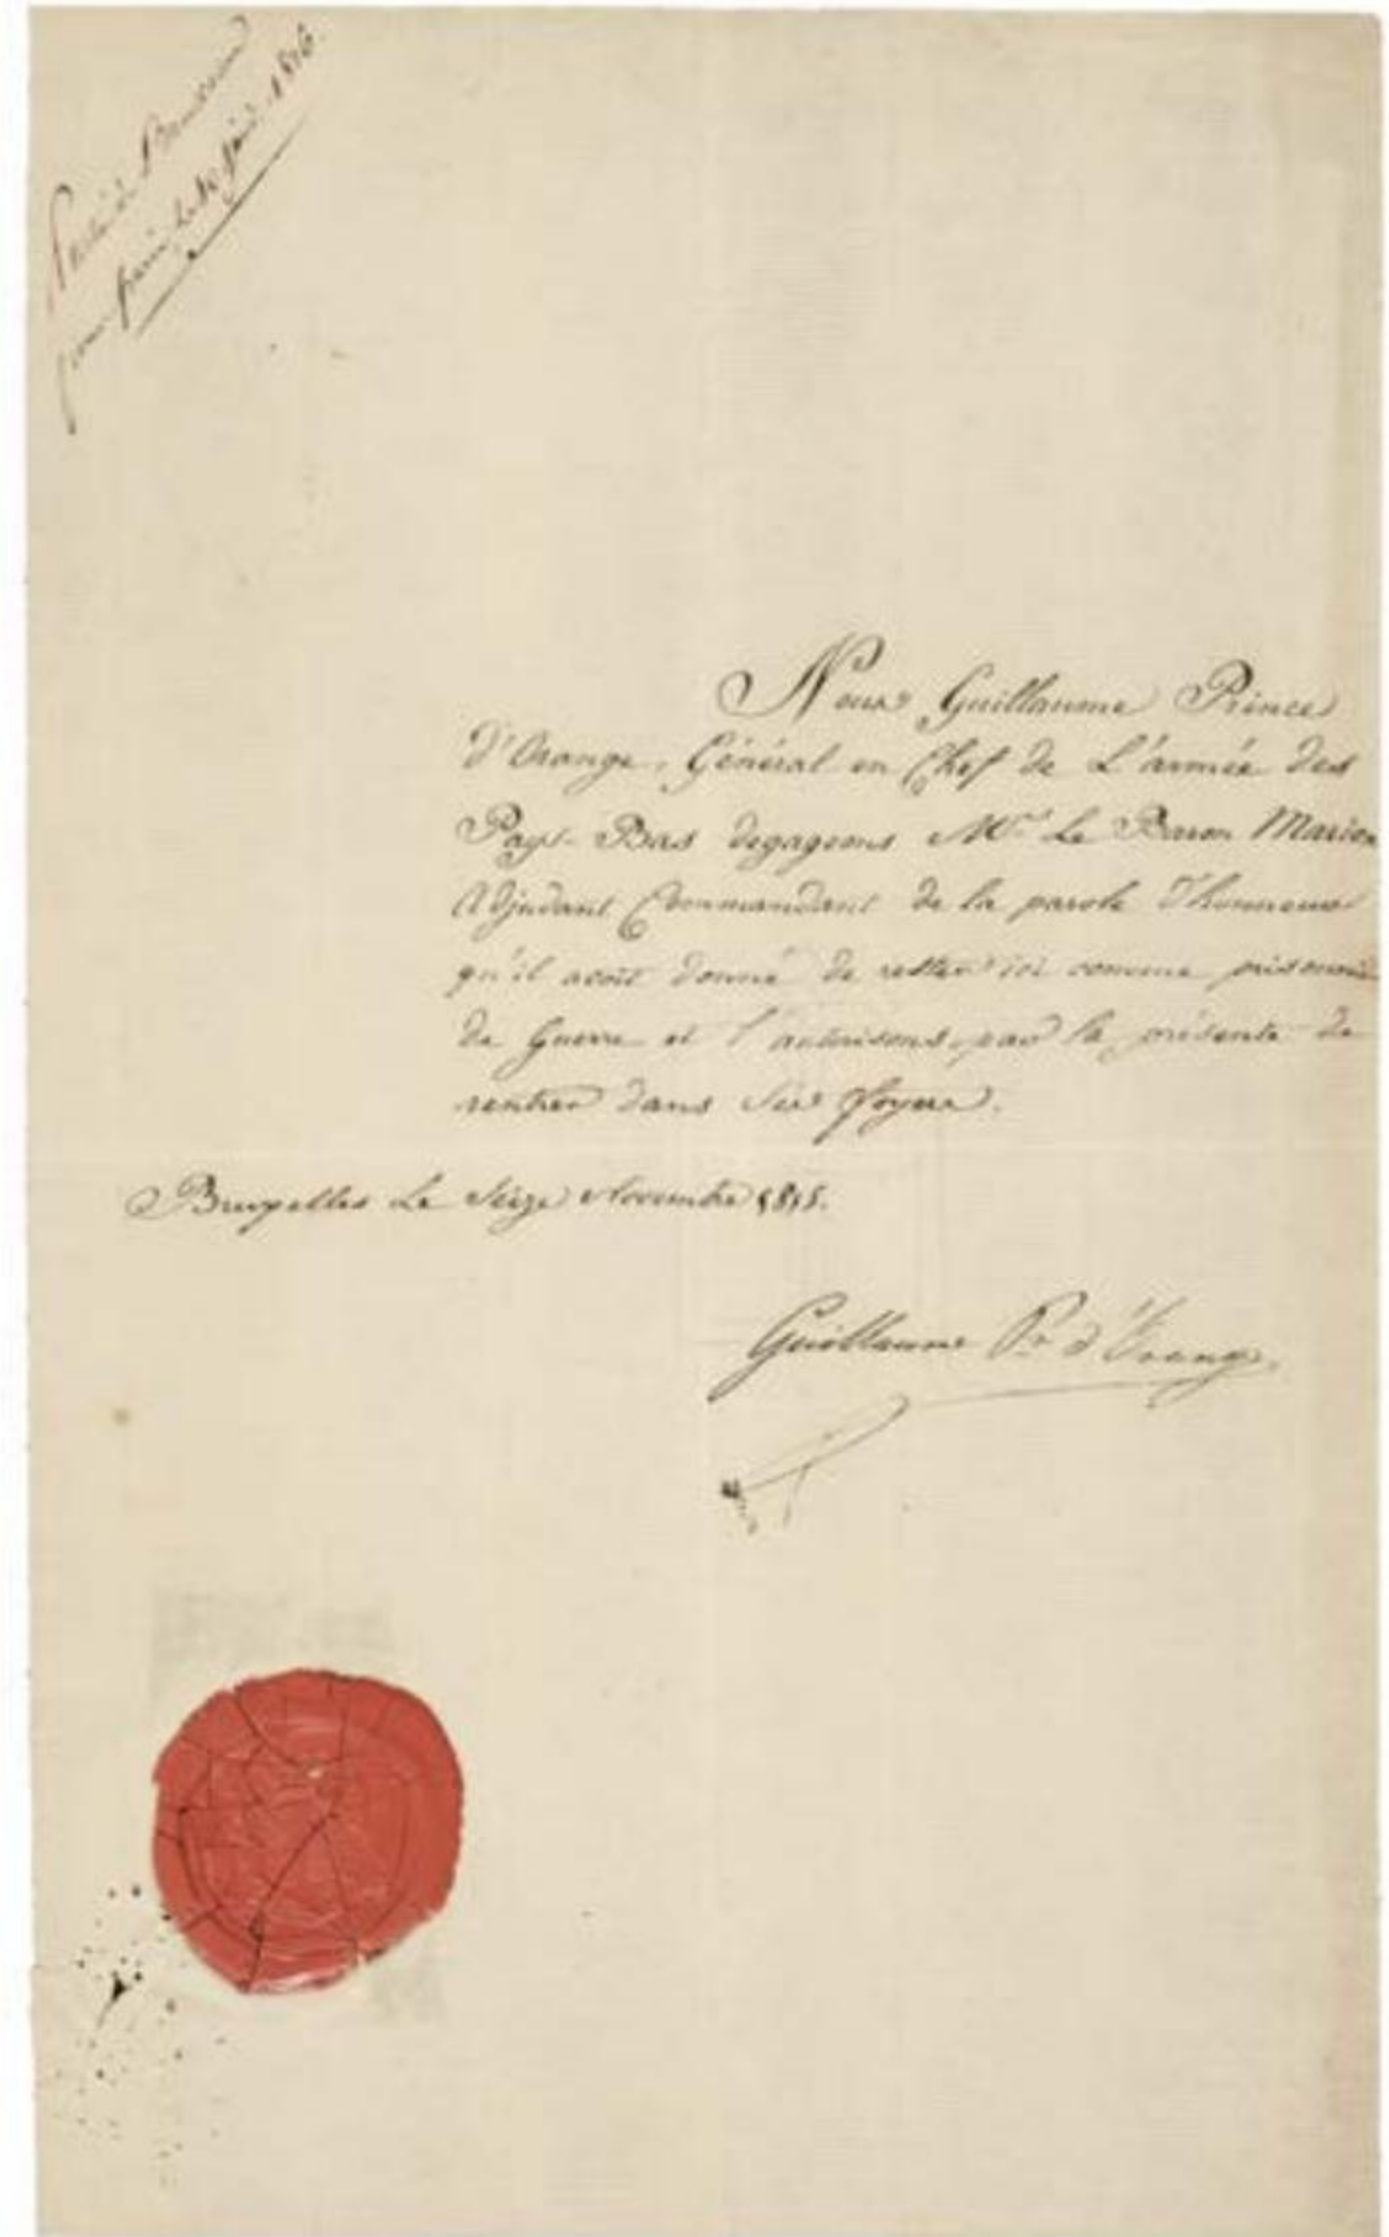 Parti de
pour paris le 10 1816.
Nous Guillaume Prince
d'Orange, Général en Chef de L'armée des
Pays-Bas degageons Mr. Le Baron Marion
Adjudant Commandant de la parole d'honneur
qu'il avoit donné de rester ici comme prisonnier
de Guerre et l'autorisons par la présente de
rentrer dans Ses foyers.
Bruxelles Le Seize Novembre 1815.
Guillaume Pr. d'Orange.